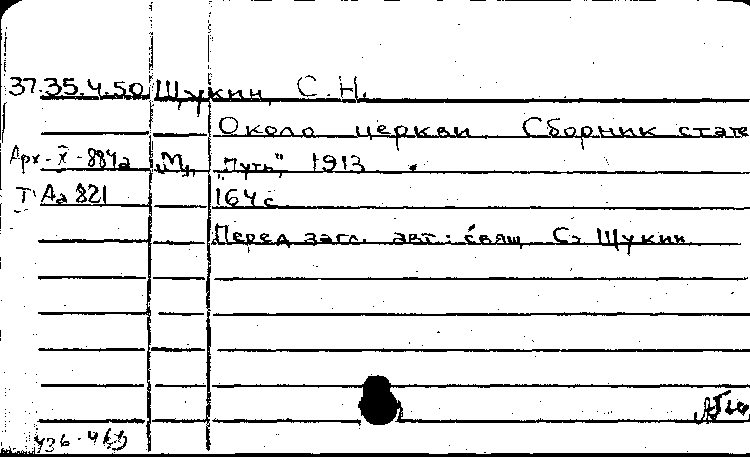 37.35.4.50 Щукин, С.Н.
Около церкви. Сборник стате
Арх-X-884а М., "Путь", 1913.
Т Аа 821 164 с.
Перед загл. авт.: свящ. С. Щукин